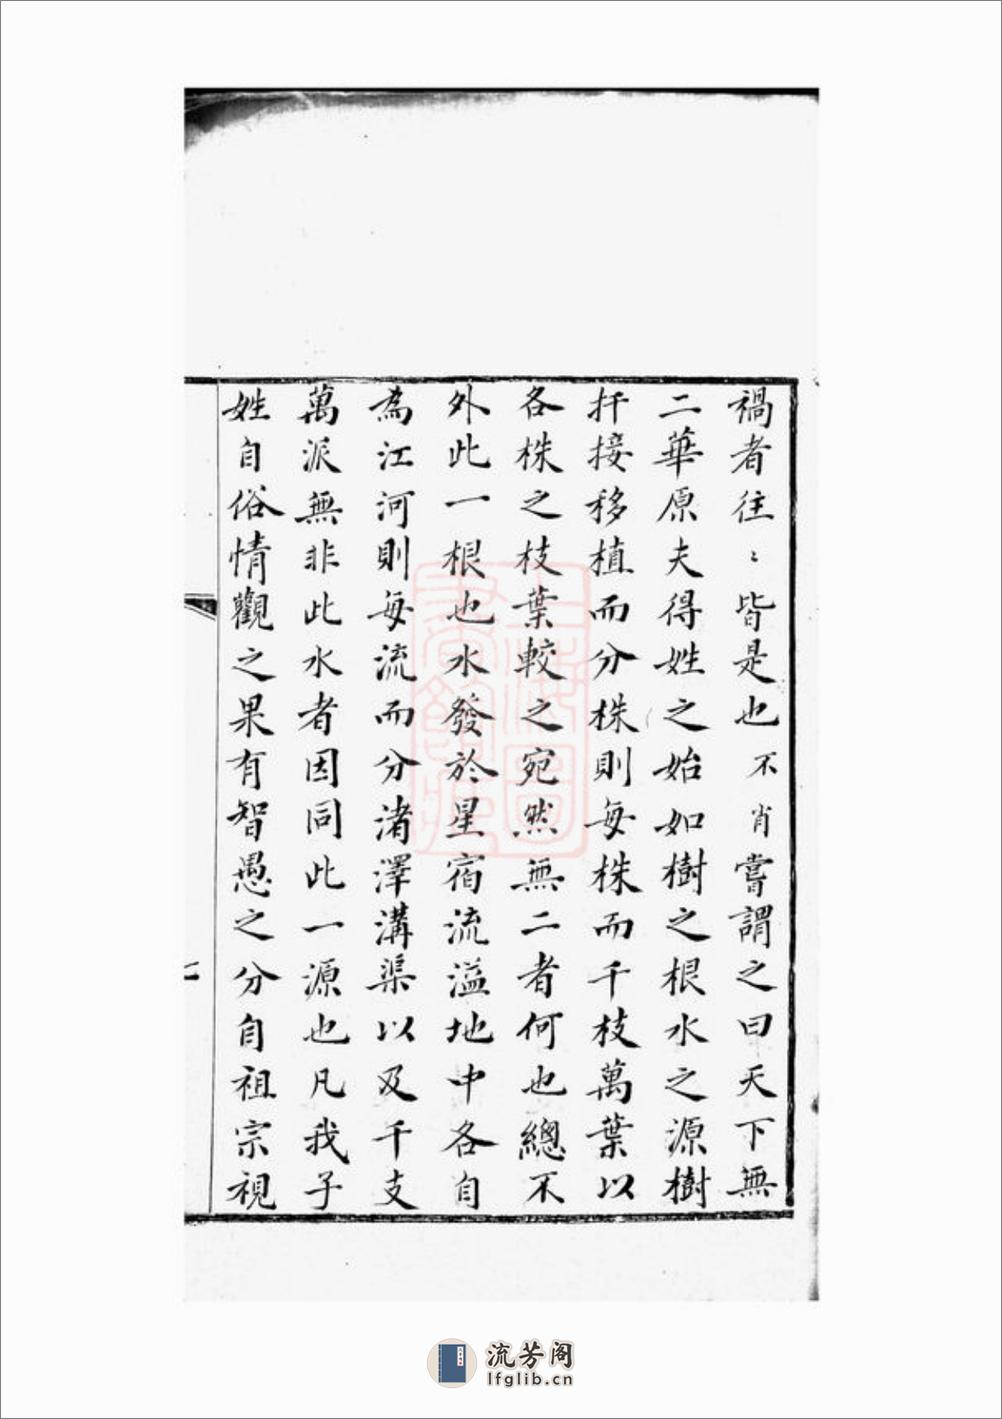 禍者往〻皆是也不肖嘗謂之曰天下無
二華原夫得姓之始如樹之根水之源樹
扦接移植而分株則每株而千枝萬葉以
各株之枝葉較之宛然無二者何也總不
外此一根也水發於星宿流溢地中各自
為江河則每流而分渚澤溝渠以及千支
萬派無非此水者因同此一源也凡我子
姓自俗情觀之果有智愚之分自祖宗視
上海圖
書館藏
流芳阁
lfglib.cn